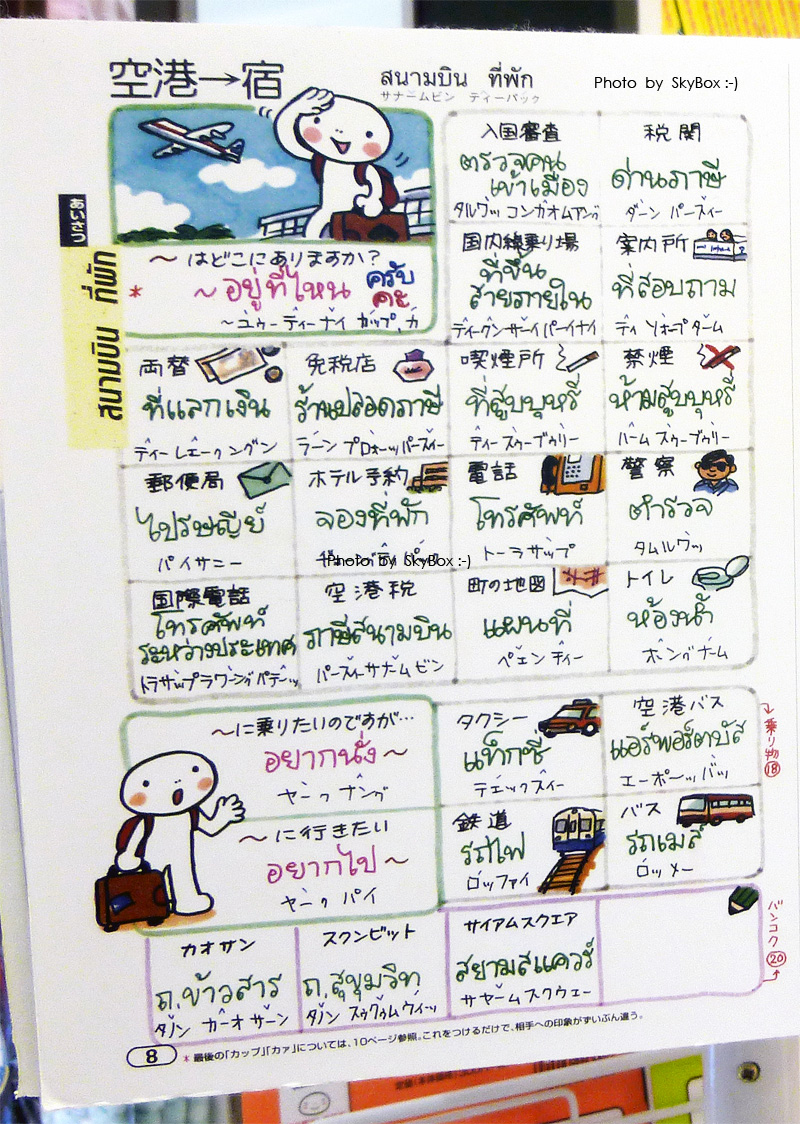 空港→宿
สนามบิน ที่พัก
サナームビン ティーパック
Photo by SkyBox :-)
あいさつ
สนามบิน ที่พัก
~はどこにありますか?
* ~อยู่ที่ไหน ครับ
คะ
~ユゥーティーナイ カップ,カ
入国審査
ตรวจคน
เข้าเมือง
税関
ด่านภาษี
ダーン パースィー
国内線乗り場
ที่ขึ้น
สายภายใน
案内所
ที่สอบถาม
ティ ソォープ ターム
両替
ที่แลกเงิน
ティー レェーク ングン
免税店
ร้านปลอดภาษี
喫煙所
ที่สูบบุหรี่
ティー スゥーブゥリー
禁煙
ห้ามสูบบุหรี่
ハーム スゥーブゥリー
郵便局
ไปรษณีย์
パイサニー
ホテル予約
จองที่พัก
Photo by SkyBox :-)
電話
โทรศัพท์
トーラサップ
警察
ตำรวจ
タムルワッ
国際電話
โทรศัพท์
ระหว่างประเทศ
空港税
ภาษีสนามบิน
パースィーサナームビン
町の地図
แผนที่
ペェンティー
トイレ
ห้องน้ำ
ホングナーム
~に乗りたいのですが…
อยากนั่ง~
ヤーク ナング
~に行きたい
อยากไป~
ヤーク パイ
タクシー
แท็กซี่
テェックスィー
空港バス
แอร์พอร์ตบัส
エーポーッ バッ
鉄道
รถไฟ
ロッファイ
バス
รถเมล์
ロッメー
乗り物
18
カオサン
ถ.ข้าวสาร
タノン カーオ サーン
スクンビット
ถ.สุขุมวิท
サイアムスクエア
สยามสแควร์
サヤームスクウェー
バンコク
20
8
*最後の「カップ」「カァ」については、10ページ参照。これをつけるだけで、相手への印象がずいぶん違う。